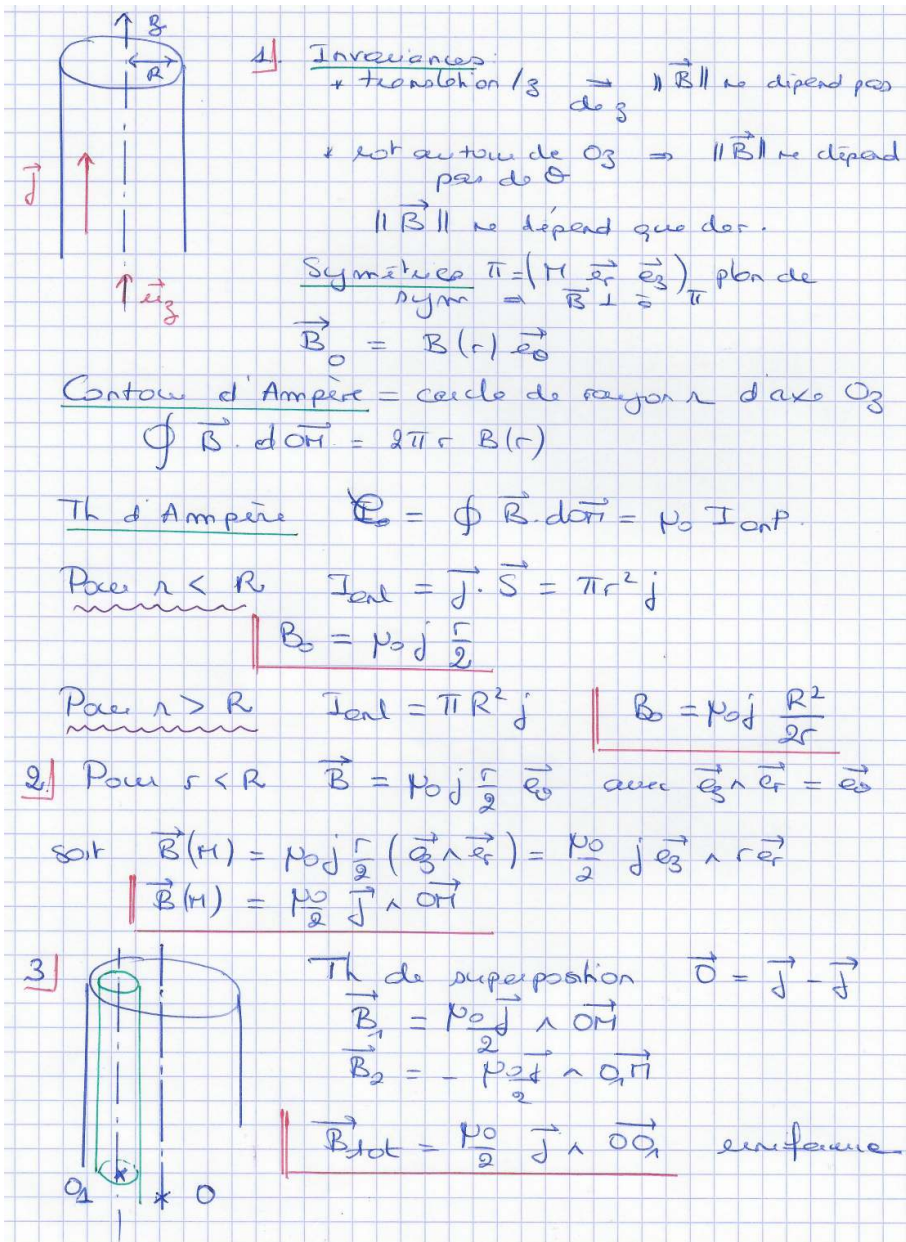 z
R
1) Invariances
* translation /z ⇒ ||B⃗|| ne dépend pas
de z
* rot autour de Oz ⇒ ||B⃗|| ne dépend
pas de θ
||B⃗|| ne dépend que de r.
j⃗
Symétries π = (M e⃗r e⃗z) plan de
sym ⇒ B⃗ ⊥ à π
u⃗z
B⃗₀ = B(r) e⃗θ
Contour d'Ampère = cercle de rayon r d'axe Oz
∮ B⃗ . dOM⃗ = 2πr B(r)
Th d'Ampère = ∮ B⃗ . dOM⃗ = μ₀ Ienl.
Pour r < R Ienl = j⃗ . S⃗ = πr² j
B₀ = μ₀ j r/2
Pour r > R Ienl = πR² j B₀ = μ₀ j R²/2r
2) Pour r < R B⃗ = μ₀ j r/2 e⃗θ avec e⃗z ∧ e⃗r = e⃗θ
soit B⃗(M) = μ₀ j r/2 (e⃗z ∧ e⃗r) = μ₀/2 j e⃗z ∧ r e⃗r
B⃗(M) = μ₀/2 j⃗ ∧ OM⃗
3) Th de superposition 0⃗ = j⃗ - j⃗
B⃗₁ = μ₀ j⃗/2 ∧ OM⃗
B⃗₂ = - μ₀ j⃗/2 ∧ O₁M⃗
B⃗tot = μ₀/2 j⃗ ∧ OO₁⃗ uniforme
O₁ O